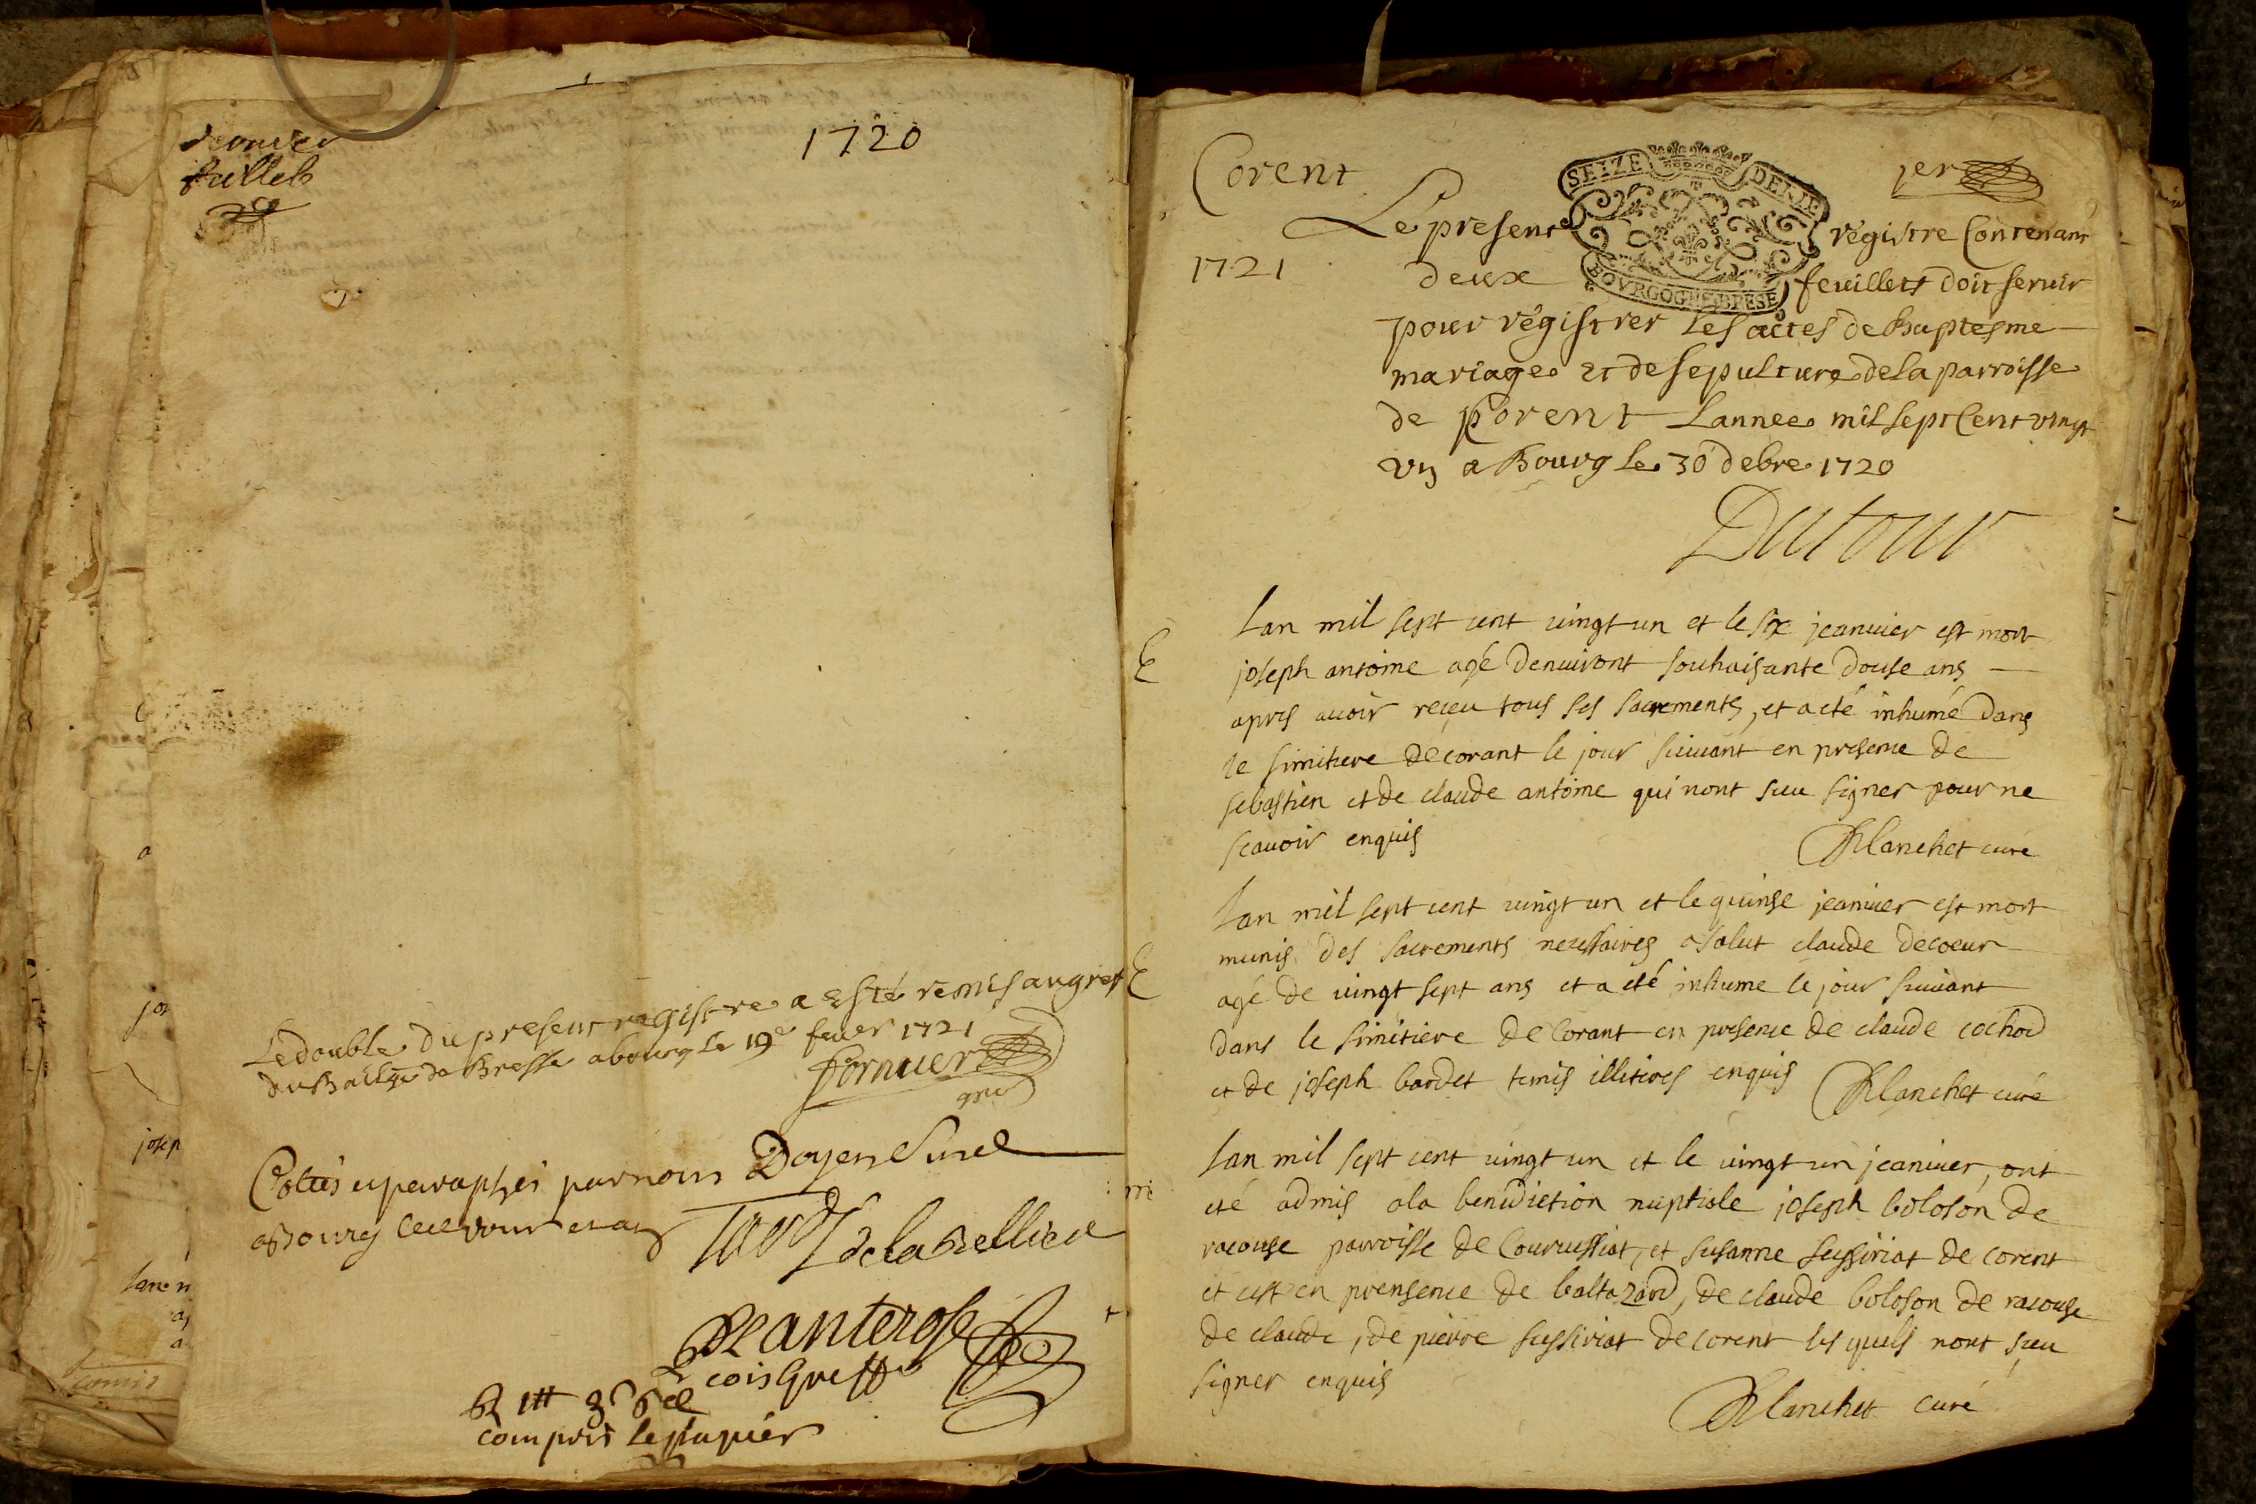 dernier
fuillet
1720
Le double du present registre a esté remis au gref
du Bailge de Bresse a bourg le 19e feuer 1721
fornuer
Cottés et paraphés par nous Doyen
a Bourg
Planterose
cois Greff
compris le papier
Corent
1er
SEIZE DENIE
BOVRGOGNE BRESE
1721
Le present registre Contenant
deux feuillets doit seruir
pour régistrer les actes de baptesme
mariage et de sepulture de la parroisse
de Corent Lannee mil sept Cent vingt
un a Bourg le 30 debre 1720
Dutour
Lan mil sept cent vingt un et le six jeanuier est mort
joseph antoine agé denuiront souhaisante douse ans
apres auoir reçeu tous ses sacrements, et a eté inhumé dans
le simitiere de corant le jour suiuant en presence de
sebastien et de claude antoine qui nont sceu signer pour ne
scauoir enquis
Planchet curé
Lan mil sept cent vingt un et le quinse jeanuier est mort
munis des sacrements necessaires a salut claude decoeur
agé de vingt sept ans et a eté inhume le jour suiuant
dans le simitiere de Corant en presence de claude cochod
et de joseph bardet temis illitires enquis
Planchet curé
Lan mil sept cent vingt un et le vingt un jeanuier, ont
eté admis a la benidiction nuptiale joseph boloson de
racouse parroisse de Courussiat, et susanne sussiriat de corent
et cest en prensence de baltazard, de claude boloson de racouse
de claude, de pierre sussiriat de corent lesquels nont sceu
signer enquis
Planchet curé